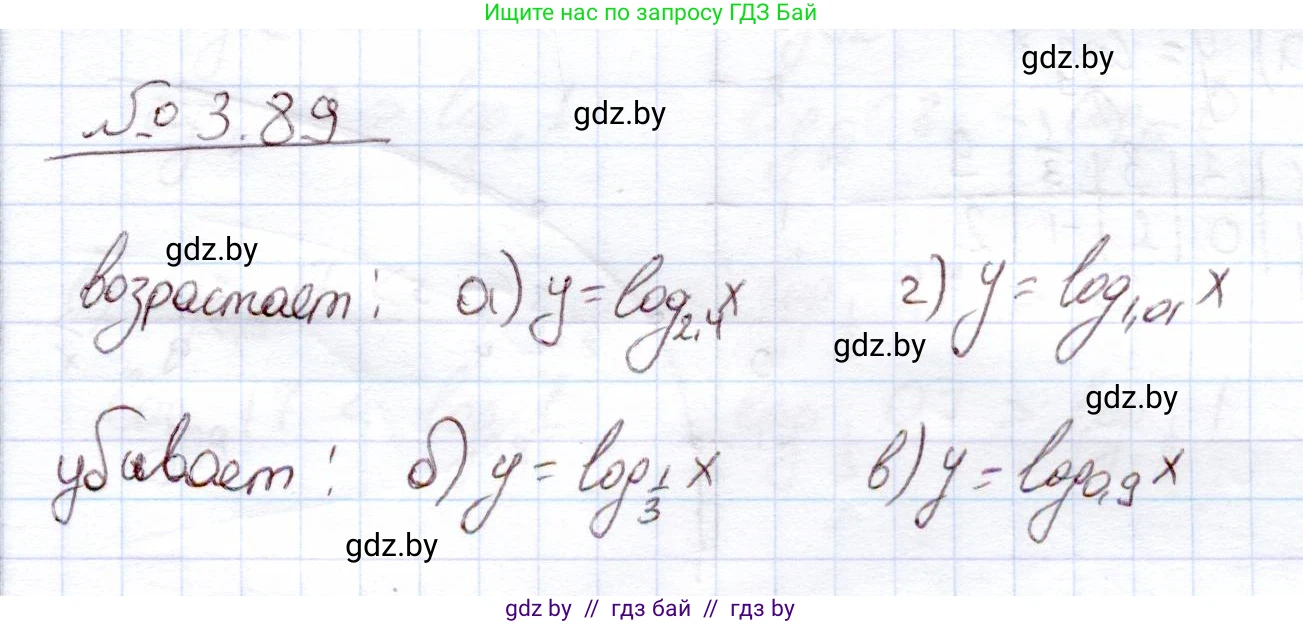 Ищите нас по запросу ГДЗ Бай
gdz.by
gdz.by
№ 3.89
gdz.by
возрастает: а) y = log_{2,4} x г) y = log_{1,01} x
gdz.by
gdz.by
убывает: б) y = log_{1/3} x в) y = log_{0,9} x
gdz.by
gdz by // гдз бай // гдз by